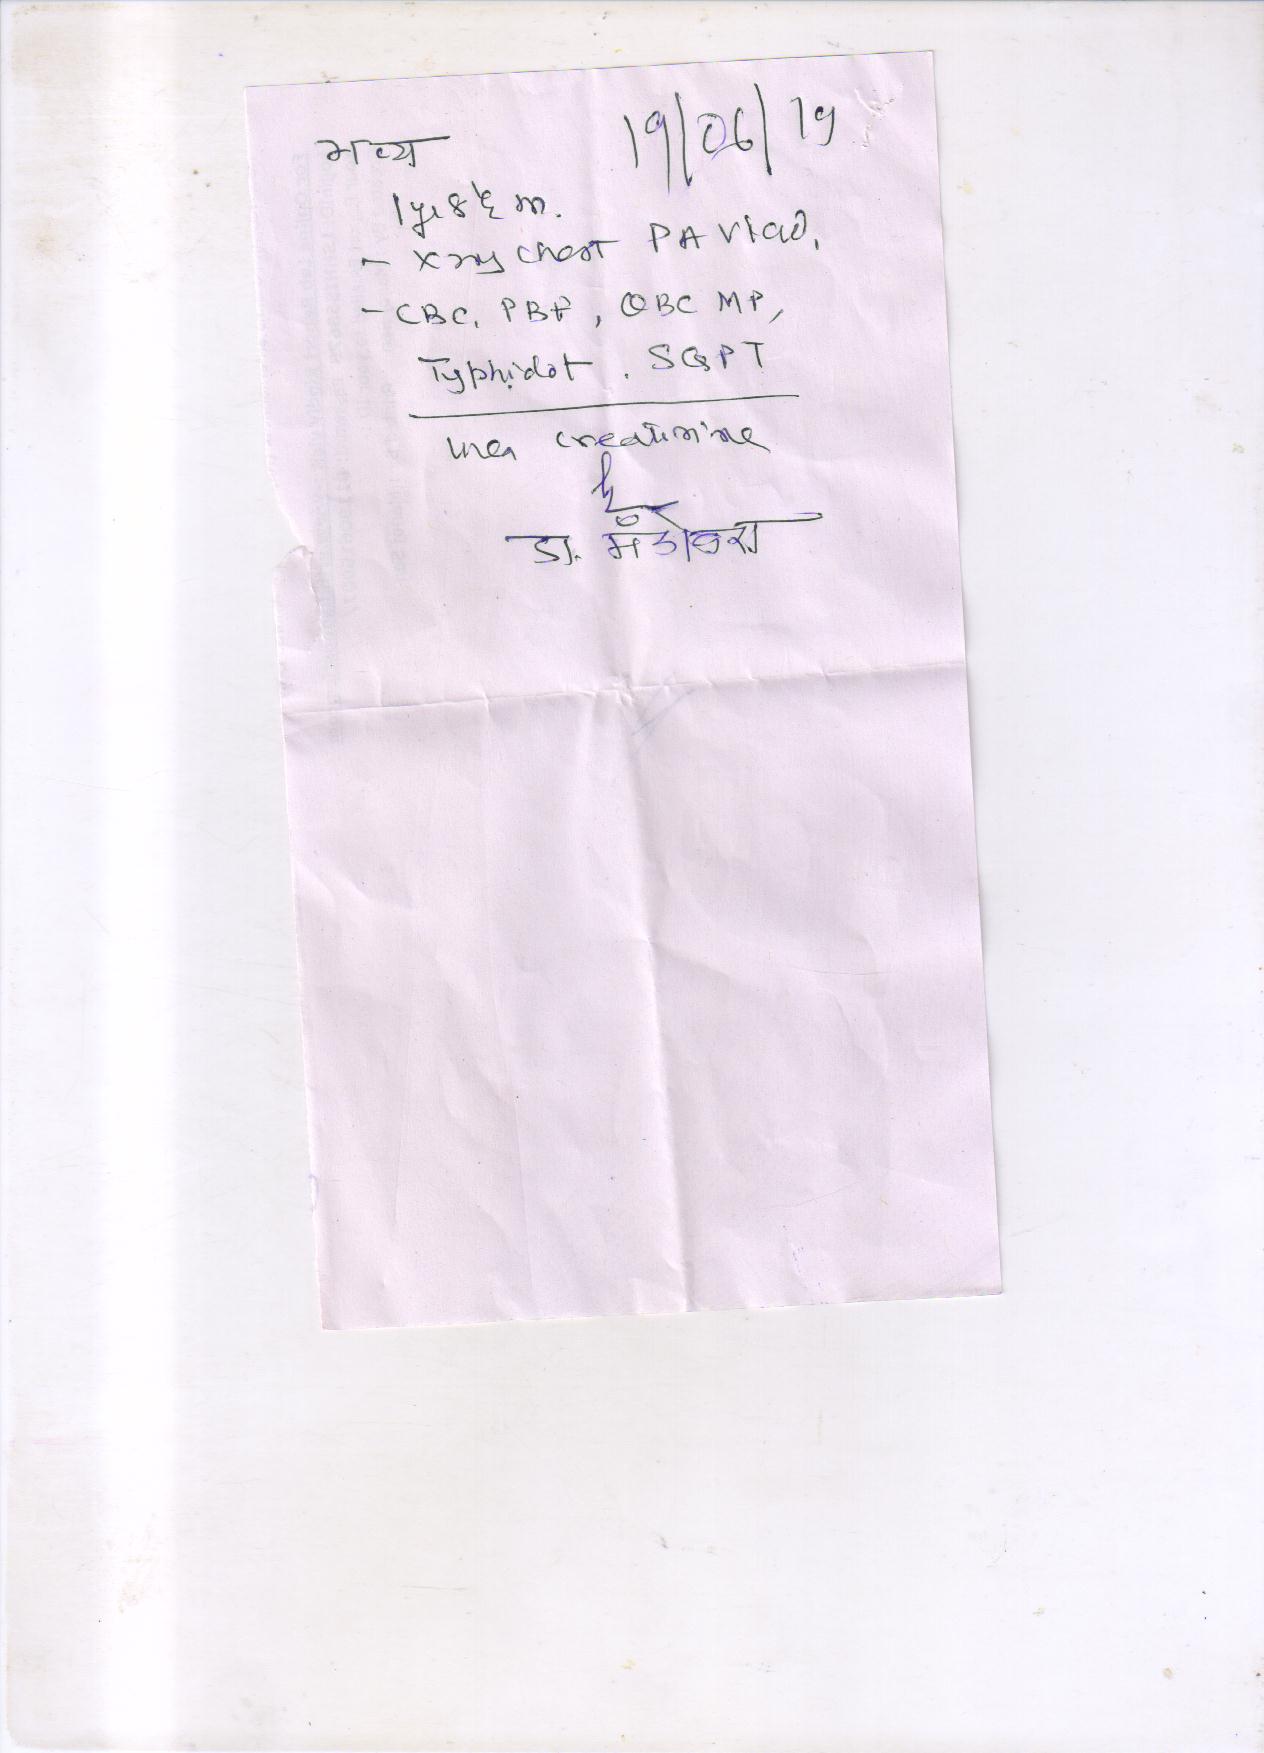 भव्य 19/06/19
1yr 8½ m.
- Xray chest PA View.
- CBC, PBF, QBC MP,
Typhidot. SGPT
Urea creatinine
डा.